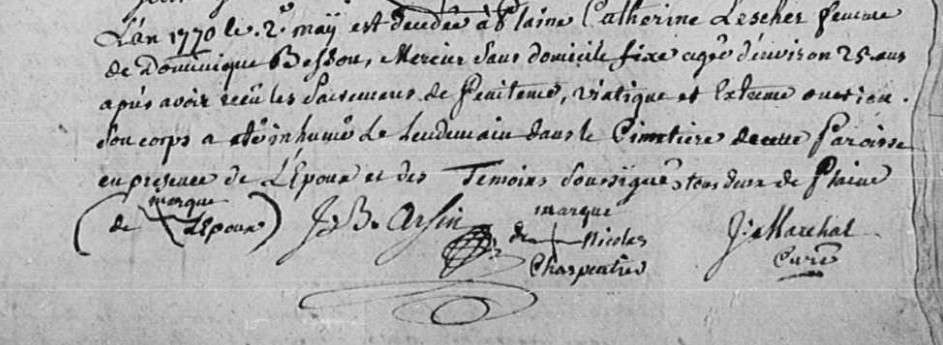 L'an 1770 le 2e maÿ est decedée à Plaine Catherine Lescher femme
de Dominique Besson, Mercier Sans domicile fixe agée d'environ 25 ans
aprés avoir recû les Sacremens de Penitence, viatique et Extreme onction.
Son corps a eté inhumé Le Lendemain dans le Cimetiere de cette Paroisse
en presence de L'Epoux et des Temoins Soussignés tous deux de Plaine
marque
de L'Epoux
J. B. Arsin
marque
de Nicolas
Charpentier
J. Marchal
Curé